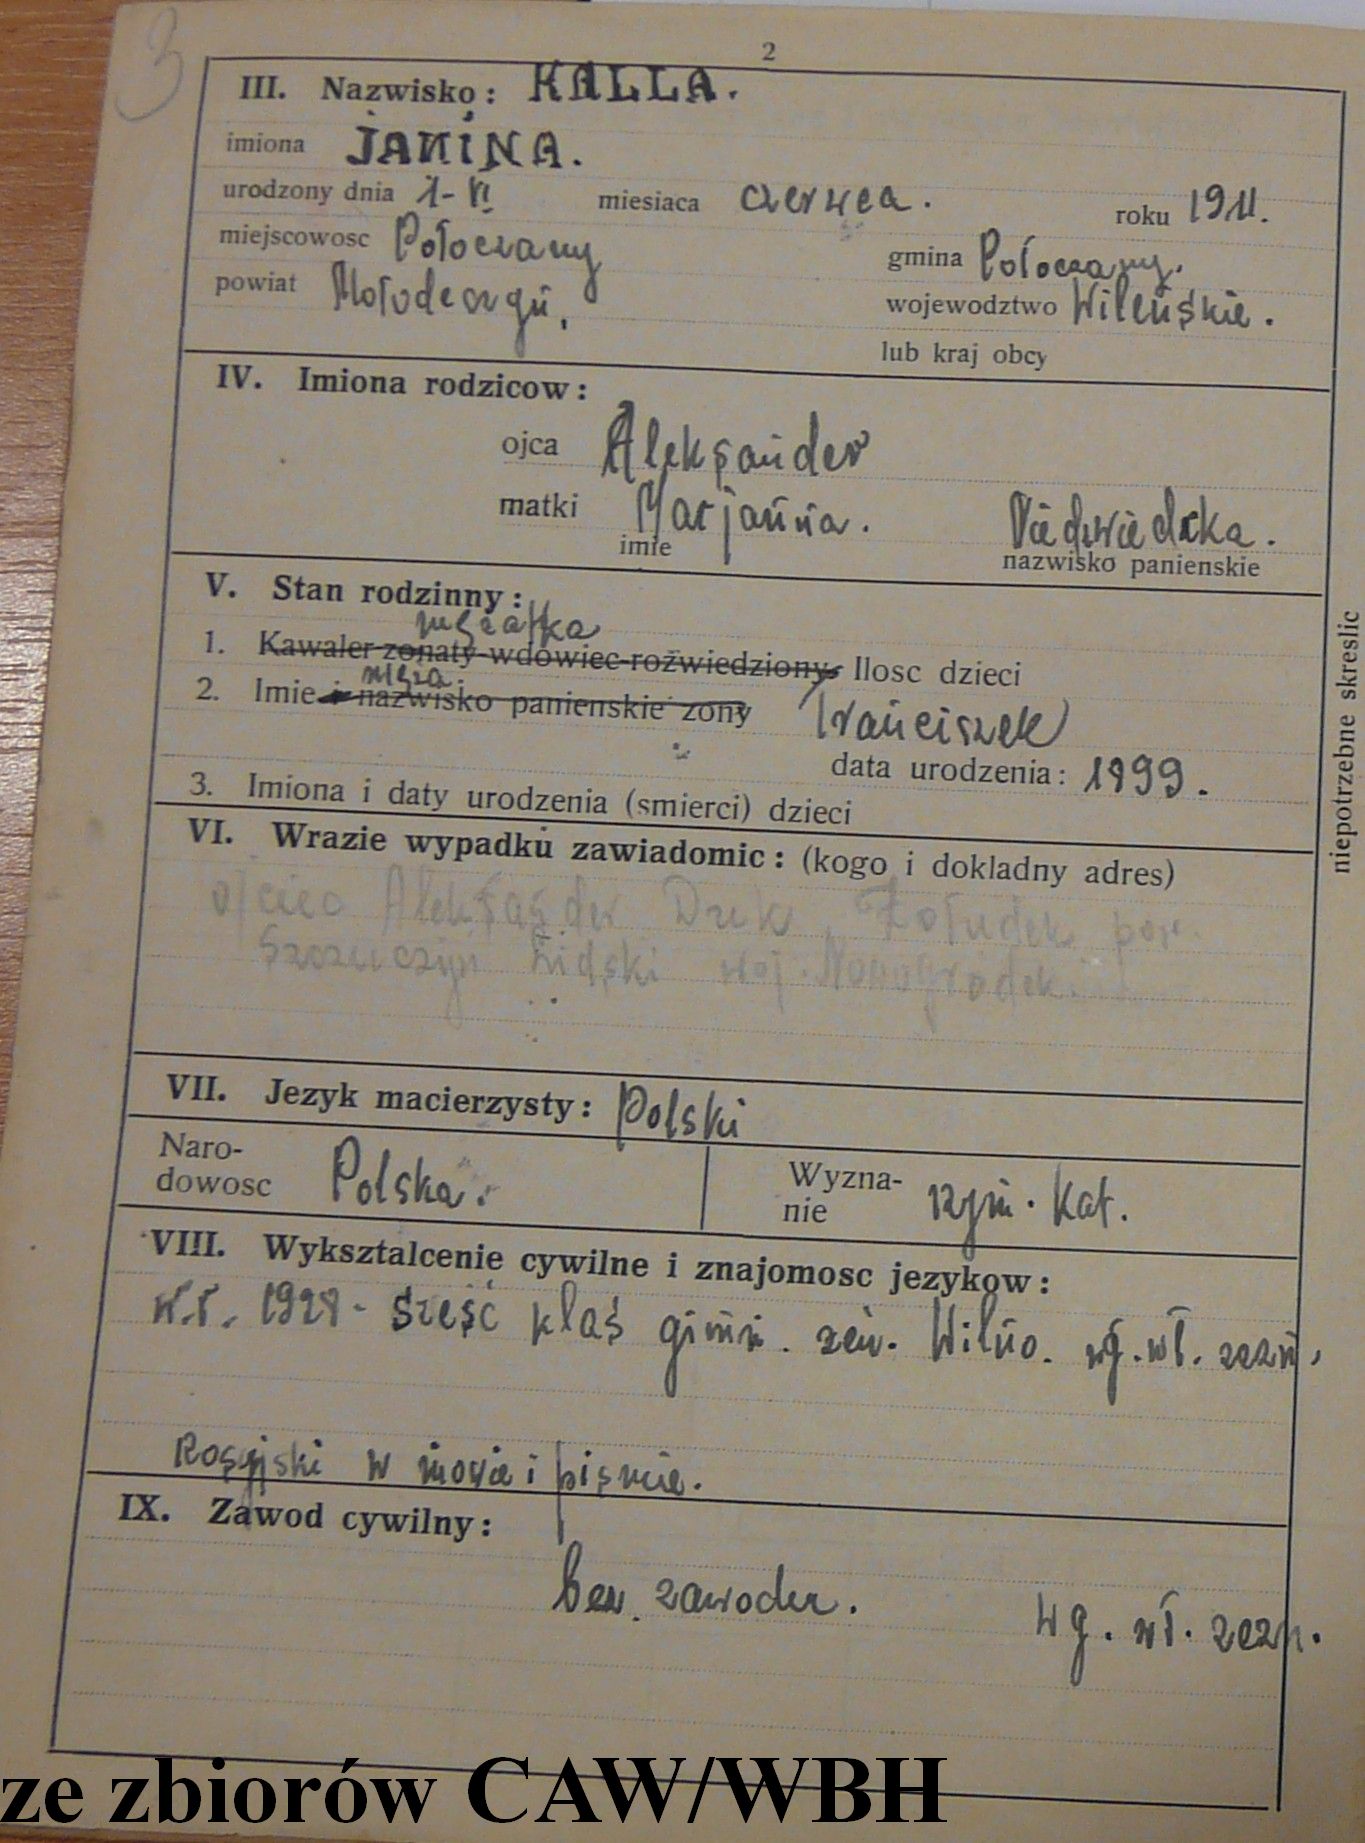 3
2
III. Nazwisko: KALLA.
imiona JANINA.
urodzony dnia 1-VI miesiaca czerwca. roku 1911.
miejscowosc Połoczany gmina Połoczany.
powiat Mołodeczyń. wojewodztwo Wileńskie.
lub kraj obcy
IV. Imiona rodzicow:
ojca Aleksander
matki Marjanna. Niedzwiedzka.
imie nazwisko panienskie
V. Stan rodzinny:
mężatka
1. Kawaler-zonaty-wdowiec-rozwiedziony Ilosc dzieci
męża.
2. Imie i nazwisko panienskie zony Franciszek
data urodzenia: 1899.
3. Imiona i daty urodzenia (smierci) dzieci
niepotrzebne skreslic
VI. Wrazie wypadku zawiadomic: (kogo i dokladny adres)
ojciec Aleksander Żołudek pow.
Szczuczyn Lidski woj. Nowogródek
VII. Jezyk macierzysty: Polski
Naro-
dowosc Polska.
Wyzna-
nie rzym. Kat.
VIII. Wyksztalcenie cywilne i znajomosc jezykow:
W.r. 1928 - sześć klas gimn. żeń. Wilno. wg. wł. zezn.
Rosyjski w mowie i piśmie.
IX. Zawod cywilny:
bez zawodu. wg. wł. zezn.
ze zbiorów CAW/WBH